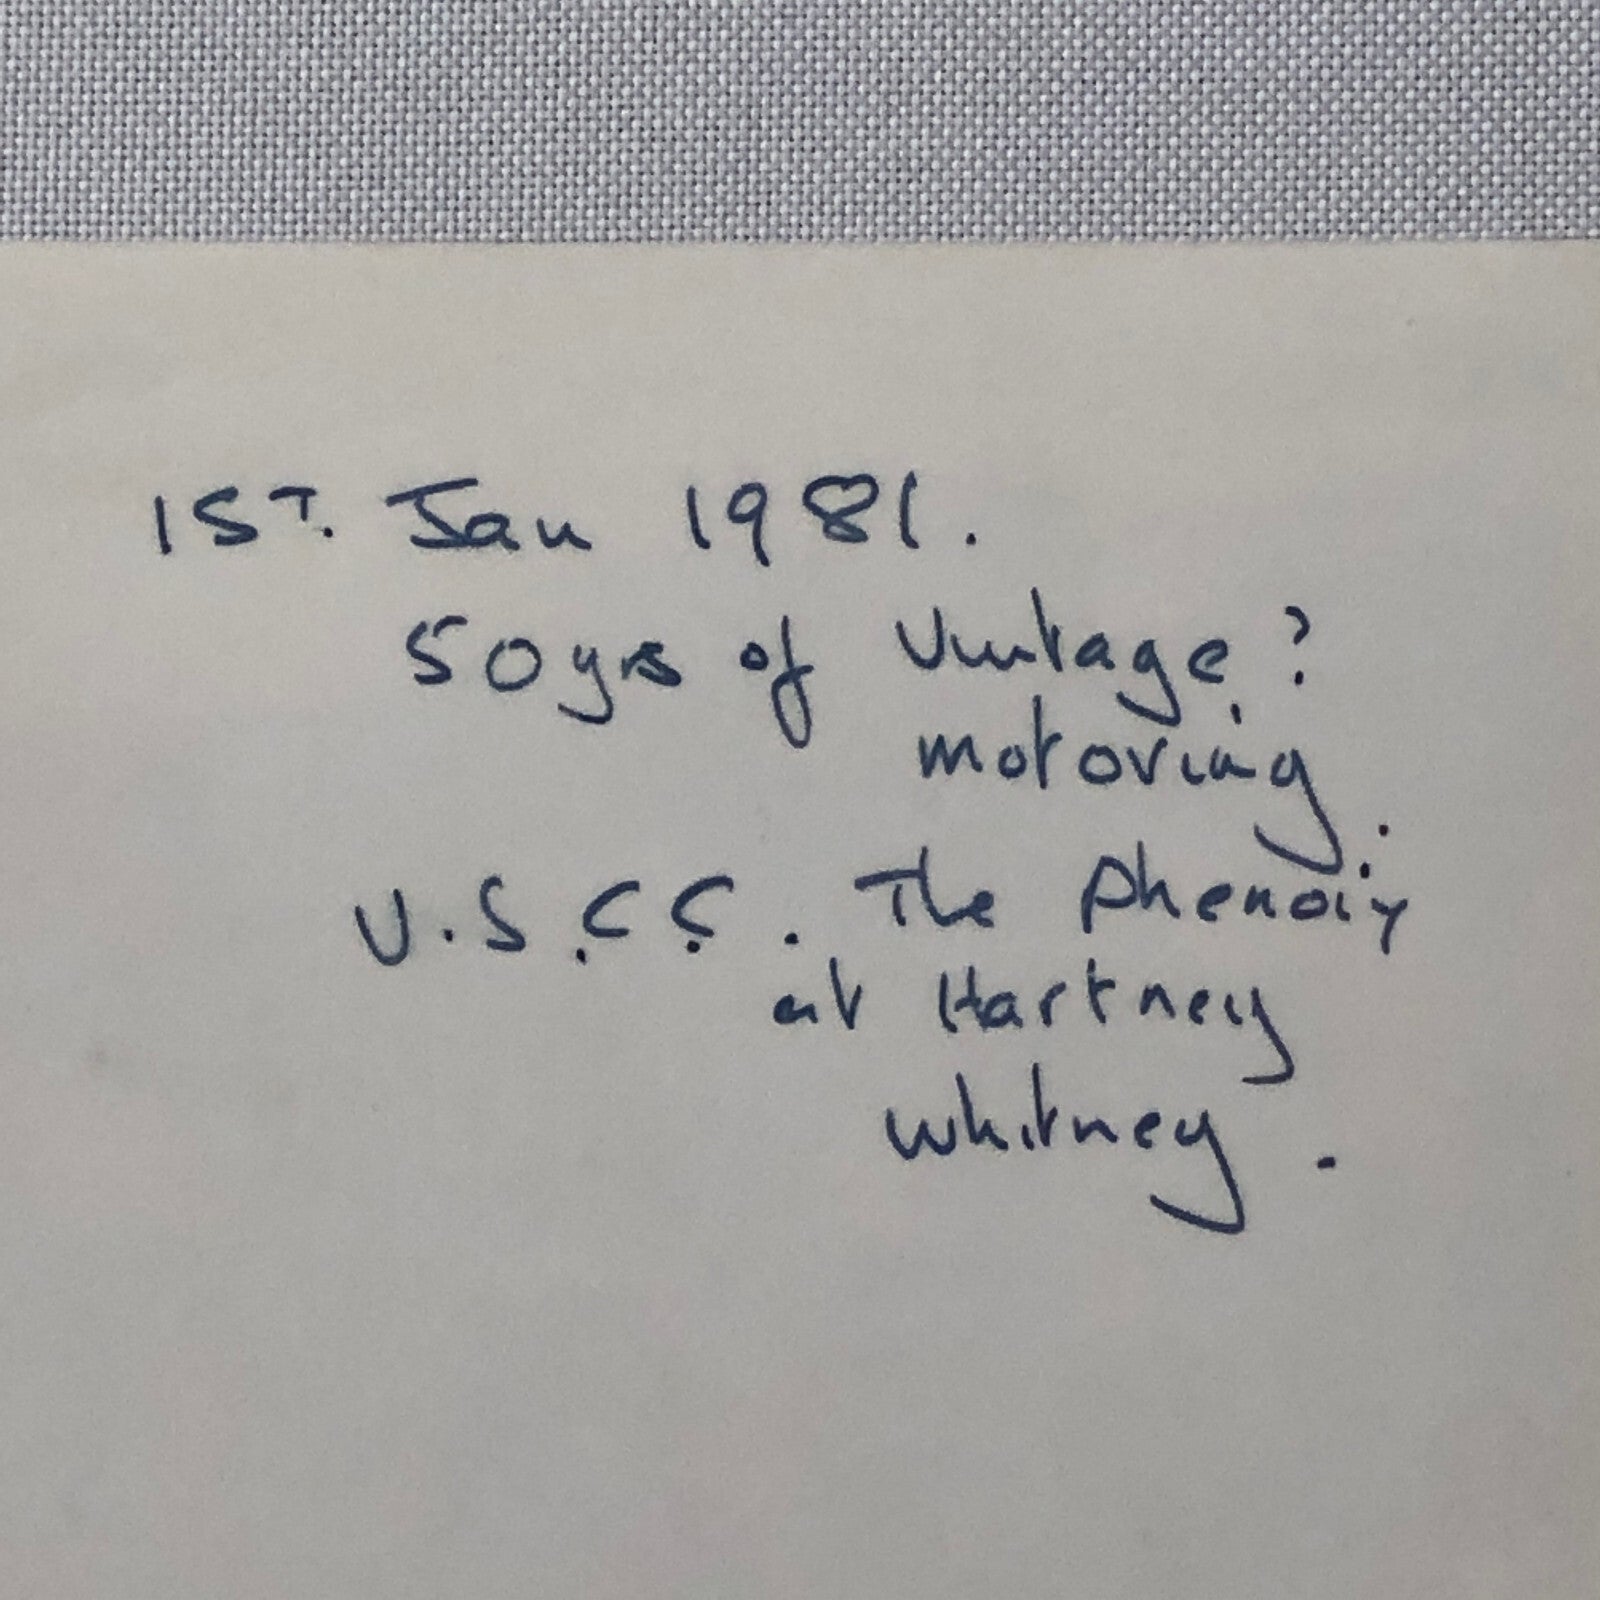 1ST. Jan 1981.
50yrs of Vintage?
motoring.
V.S.C.C. The Phenoix
at Hartney
Whitney.